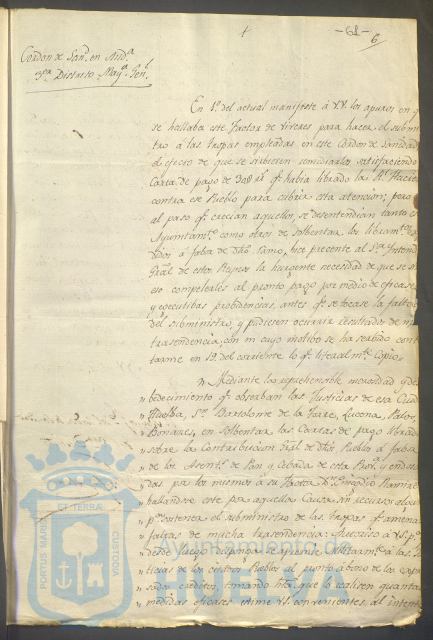 -61-
6
Cordon de San.d en And.a
3.er Distrito May.a Gen.l
En 1.º del actual manifeste á VV. los apuros en q.e
se hallaba este Factor de viveres para hacer el submi
tro á las tropas empleadas en este Cordon de Sanidad
efecto de que se sirviesen remediarlos satisfaciendo
Carta de pago de 300 r.s q.e habia librado la R.l Hacien
contra ese Pueblo para cubrir esta atencion; pero
al paso q.e crecian aquellos, se desentendian tanto es
Ayuntam.to como otros de solbentar los libram.tos
didos á fabor de dho Ramo, hice presente al S.or Intend
Gral de estos Reynos la hurgente necesidad de que se
competerles al pronto pago por medio de eficaces
y egecutibas probidencias, antes q.e se tocase la falta
del subministro, y pudiesen ocurrir resultados de
trasendencia, con cuyo motibo se ha serbido cont
tarme en 12 del corriente lo q.e literalm.te Copio
Mediante la reprehensible morosidad y de
bedecimiento q.e obserban las Justicias de esa
Huelba, S.n Bartolome de la Torre, Lucena, Palos,
Bonares, en solbentar las Cartas de pago librad
sobre la Contribucion Gral de dhos Pueblos á fabor
de los Asent.s de Pan y Cebada de esta Prov.a y endosa
das por los mismos á su Factor D.n Emigdio Ramirez
hallandose este por aquella Causa sin recursos
p.a sostener el subministro de las tropas q.e amena
faltas de mucha trasendencia: Autorizo á VS. p.a
desde luego disponga se apremie militarm.te á las
ticias de los citados Pueblos al punto abono de los
sados creditos, tomando h.ta que lo realisen quantas
medidas eficaces estime VS. convenientes, al intent
PORTUS MARIS ET TERRÆ CUSTODIA
Ayuntamiento de
HUELVA